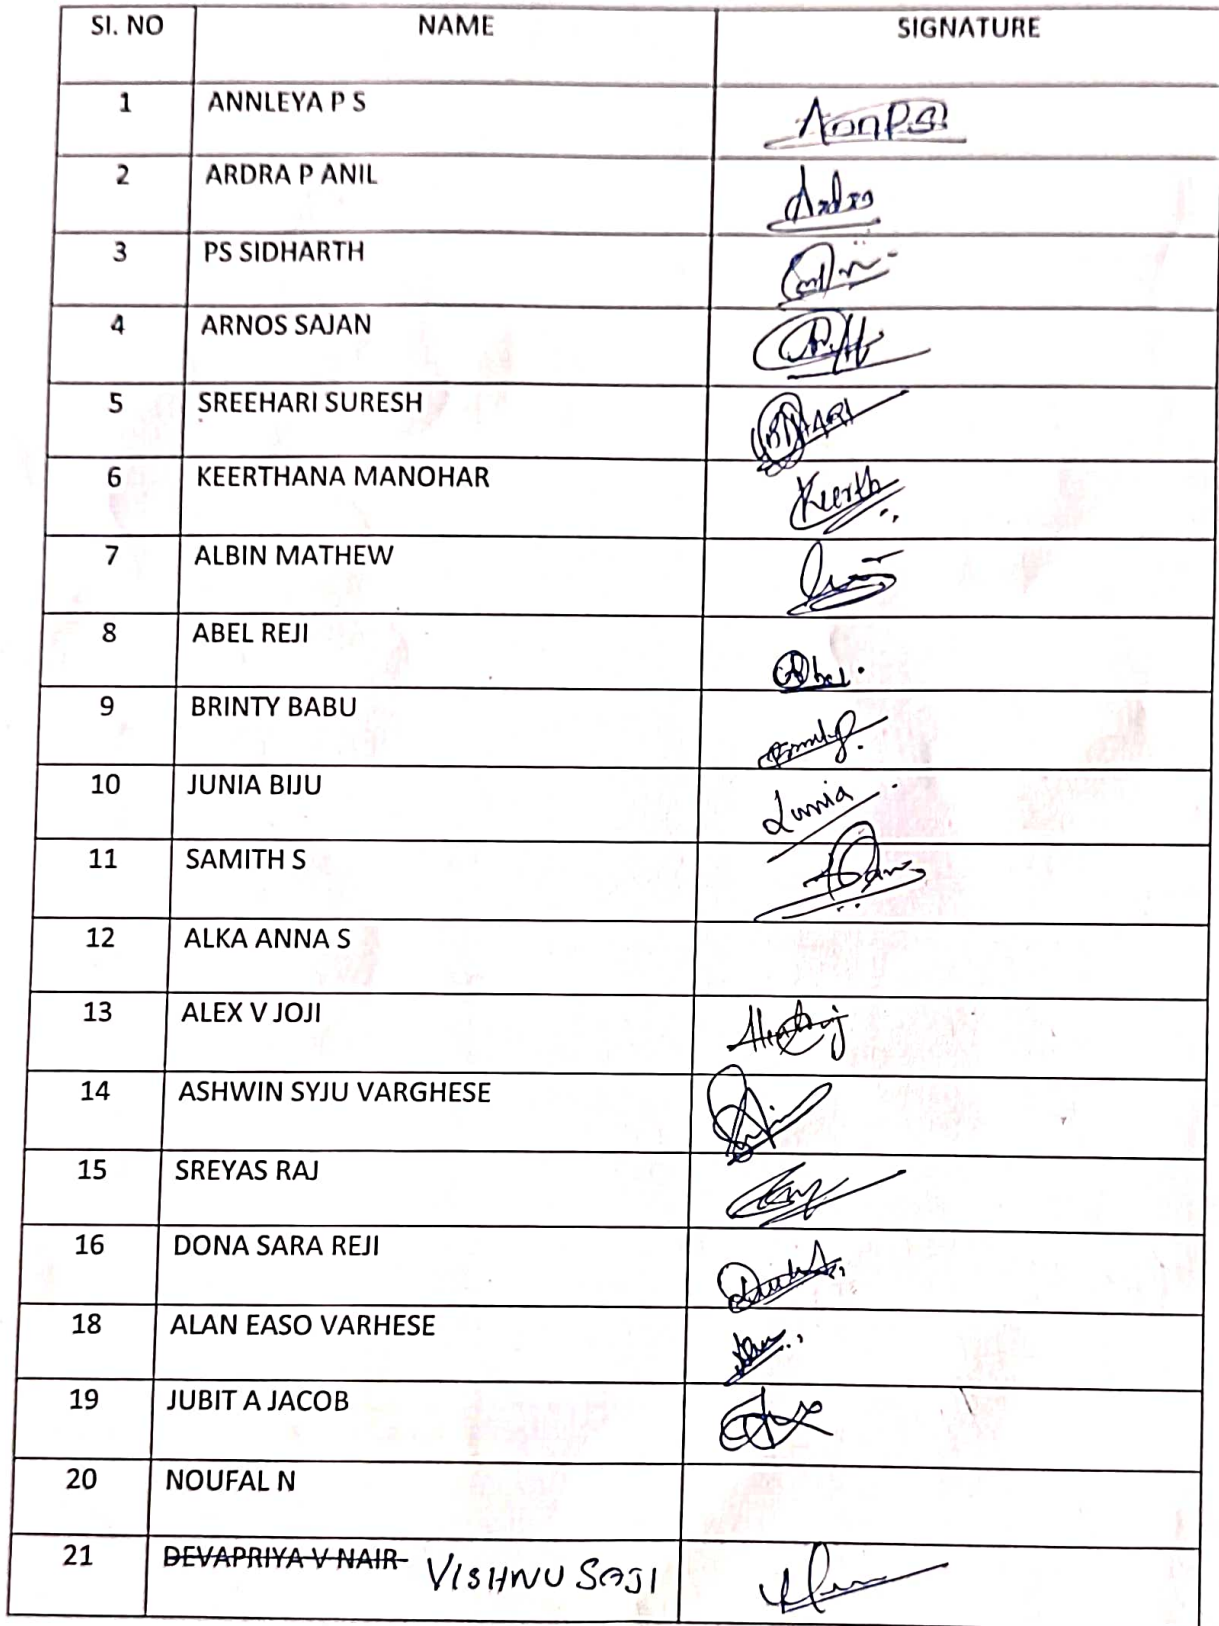 SI. NO NAME SIGNATURE
1 ANNLEYA P S AnnPS
2 ARDRA P ANIL Ardra
3 PS SIDHARTH
4 ARNOS SAJAN
5 SREEHARI SURESH HARI
6 KEERTHANA MANOHAR Keerth
7 ALBIN MATHEW
8 ABEL REJI Abel
9 BRINTY BABU
10 JUNIA BIJU Junia
11 SAMITH S
12 ALKA ANNA S
13 ALEX V JOJI
14 ASHWIN SYJU VARGHESE
15 SREYAS RAJ
16 DONA SARA REJI
18 ALAN EASO VARHESE
19 JUBIT A JACOB
20 NOUFAL N
21 DEVAPRIYA V NAIR VISHNU SAJI